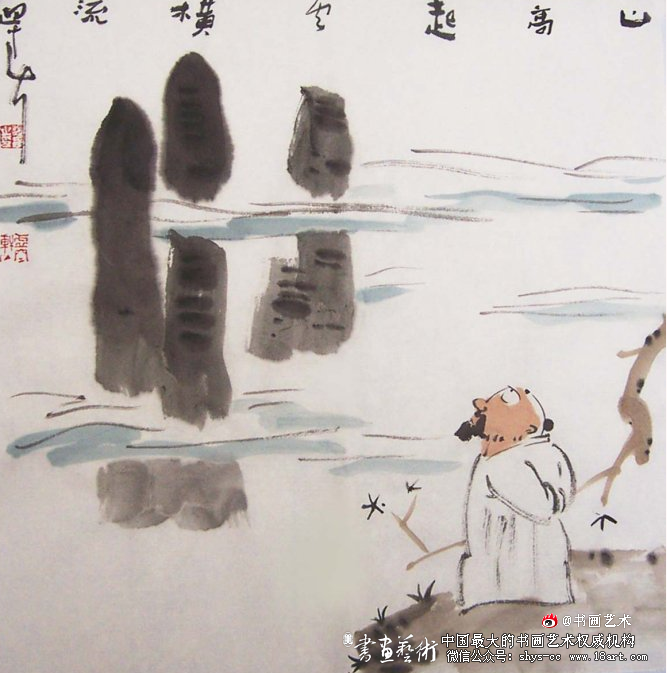 山高起云橫流
@书画艺术
書畫藝術
中国最大的书画艺术权威机构
微信公众号：shys-cc www.18art.com